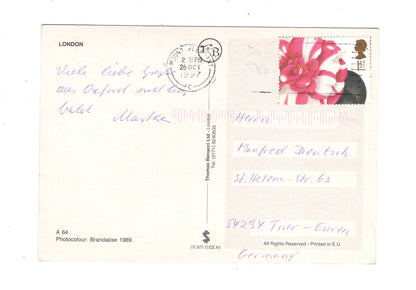 LONDON
Viele liebe Grüße
aus Oxford und bis
bald Marka
2 15PM
26 OCT
1997
1ST
Herrn
Manfred Deutsch
St. Helena-Str. 63
54294 Trier-Euren
Germany
Thomas Benacci Ltd - London
Tel. (0171) 9240635
A 64
Photocolour: Brandalise 1989
All Rights Reserved - Printed in E.U.